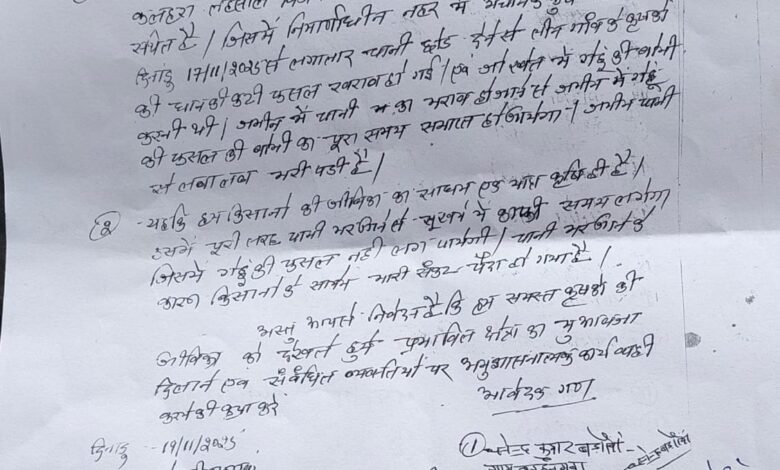 कलहरा तहसील
संचित है। जिसमें निर्माणाधीन नहर में
दिनांक 17/11/2025 से लगातार पानी छोड़ देने से तीन गाँव के कृषकों
की धान की कटी फसल खराब हो गई। एवं जो खेत में गेहूं की बोनी
करनी थी। जमीन में पानी का भराव हो जाने से जमीन में गेहूं
की फसल की बोनी का पूरा समय समाप्त हो जायेगा। जमीन पानी
से लबालब भरी पडी है।
② - यहकि हम किसानों की जीविका का साधन एक मात्र कृषि ही है।
इसमें पूरी तरह पानी भर जाने से सूखने में काफी समय लगेगा
जिसमें गेहूं की फसल नही लग पायेगी। पानी भर जाने के
कारण किसानों के सामने भारी संकट पैदा हो गया है।
अस्तु आपसे निवेदन है कि हम समस्त कृषकों की
जीविका को देखते हुये प्रभावित क्षेत्रों का मुआवजा
दिलाने एवं संबंधित व्यक्तियों पर अनुशासनात्मक कार्यवाही
करने की कृपा करें
आवेदक गण
दिनांक - 19/11/2025
① कुमार